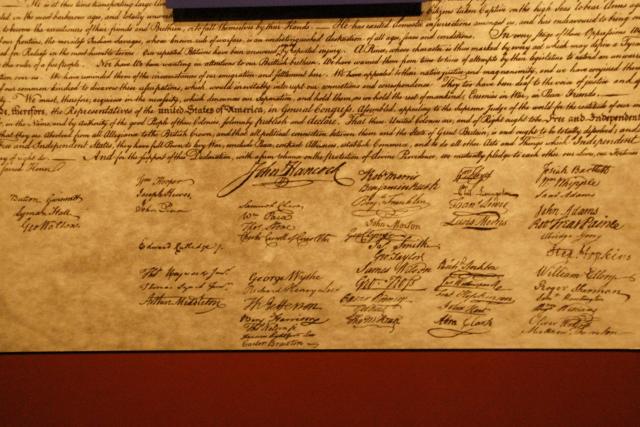 He is at this time transporting large
taken Captive on the high Seas to bear Arms
the most barbarous ages, and totally
to become the executioners of their friends and Brethren, or to fall themselves by their Hands. He has excited domestic insurrections amongst us, and has endeavoured to bring
undistinguished destruction of all ages, sexes and conditions. In every stage of these Oppressions We
for Redress in the most humble terms: Our repeated Petitions have been answered by repeated injury. A Prince, whose character is thus marked by every act which may define a Tyrant,
Nor have We been wanting in attentions to our British brethren. We have warned them from time to time of attempts by their legislature to extend an
We have reminded them of the circumstances of our emigration and settlement here. We have appealed to their native justice and magnanimity, and we have conjured them
our common kindred to disavow these usurpations, which would inevitably interrupt our connections and correspondence. They too have been deaf to the voice of justice and
We must, therefore, acquiesce in the necessity, which denounces our Separation, and hold them, as we hold the rest of mankind, Enemies in War, in Peace Friends.
We, therefore, the Representatives of the united States of America, in General Congress, Assembled, appealing to the Supreme Judge of the world for the rectitude of our
in the Name, and by Authority of the good People of these Colonies, solemnly publish and declare, That these United Colonies are, and of Right ought to be Free and Independent
that they are Absolved from all Allegiance to the British Crown, and that all political connection between them and the State of Great Britain, is and ought to be totally dissolved; and
Free and Independent States, they have full Power to levy War, conclude Peace, contract Alliances, establish Commerce, and to do all other Acts and Things which Independent
And for the support of this Declaration, with a firm reliance on the protection of divine Providence, we mutually pledge to each other our Lives, our Fortunes
John Hancock
Button Gwinnett
Lyman Hall
Geo Walton
Wm Hooper
Joseph Hewes
John Penn
Edward Rutledge
Thos Heyward Junr
Thomas Lynch Junr
Arthur Middleton
Samuel Chase
Wm Paca
Thos Stone
Charles Carroll of Carrollton
George Wythe
Richard Henry Lee
Th Jefferson
Benj Harrison
Thos Nelson jr
Francis Lightfoot Lee
Carter Braxton
Robt Morris
Benjamin Rush
Benj Franklin
John Morton
Geo Clymer
Jas Smith
Geo Taylor
James Wilson
Geo Ross
Caesar Rodney
Geo Read
Tho M:Kean
Wm Floyd
Phil Livingston
Frans Lewis
Lewis Morris
Richd Stockton
Jno Witherspoon
Fras Hopkinson
John Hart
Abra Clark
Josiah Bartlett
Wm Whipple
Saml Adams
John Adams
Robt Treat Paine
Elbridge Gerry
Step Hopkins
William Ellery
Roger Sherman
Saml Huntington
Wm Williams
Oliver Wolcott
Matthew Thornton